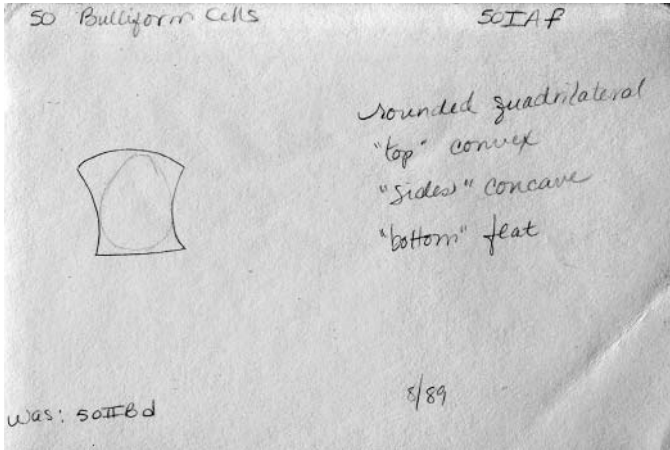 50 Bulliform Cells 50IAf
rounded quadrilateral
"top" convex
"sides" concave
"bottom" flat
8/89
was: 50IIBd